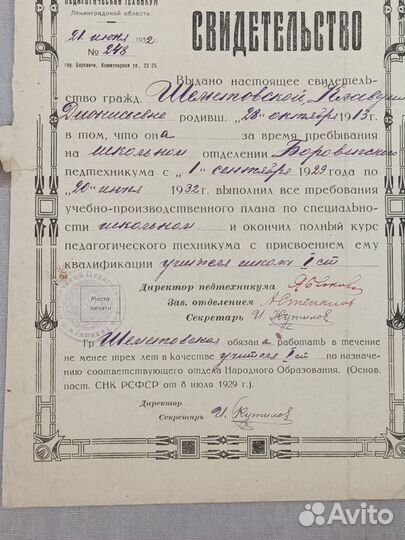 ПЕДАГОГИЧЕСКИЙ ТЕХНИКУМ
Ленинградской области.
21 июня 1932 г.
№ 248
гор. Боровичи, Коммунарная ул., 23-25.
СВИДЕТЕЛЬСТВО
Выдано настоящее свидетель-
ство гражд. Шеметовской
Дионисьевне родивш. „28" октября 1913 г.
в том, что она за время пребывания
на школьном отделении Боровичского
педтехникума с „1" сентября 1929 года по
„20" июня 1932 г. выполнил все требования
учебно-производственного плана по специально-
сти школьном и окончил полный курс
педагогического техникума с присвоением ему
квалификации учителя школ I ст
Место
печати
Директор педтехникума
Зав. отделением
Секретарь И. Кутилов
Гр. Шеметовская обязана работать в течение
не менее трех лет в качестве учителя I ст по назначе-
нию соответствующего отдела Народного Образования. (Основ.
пост. СНК РСФСР от 8 июля 1929 г.).
Директор
Секретарь И. Кутилов
Avito